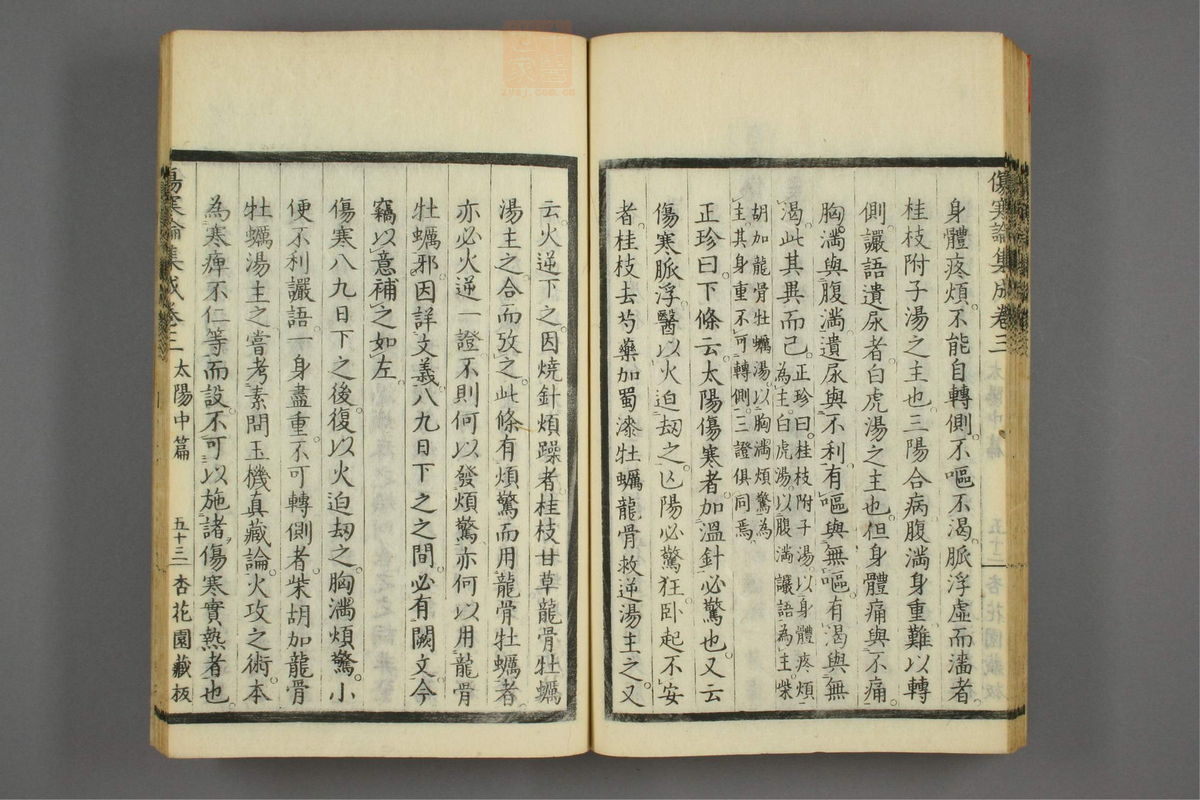 傷寒論集成卷三
身體疼煩。不能自轉側。不嘔不渴。脈浮虛而濇者。
桂枝附子湯之主也。三陽合病腹滿身重。難以轉
側。讝語遺尿者。白虎湯之主也。但身體痛與不痛。
胸滿與腹滿。遺尿與不利。有嘔與無嘔。有渴與無
渴。此其異而已。正珍曰。桂枝附子湯。以身體疼煩
為主。白虎湯。以腹滿讝語為主。柴
胡加龍骨牡蠣湯。以胸滿煩驚為
主。其身重不可轉側。三證俱同焉。
正珍曰。下條云。太陽傷寒者。加溫針必驚也。又云
傷寒脈浮。醫以火迫刼之。亾陽必驚狂。臥起不安
者。桂枝去芍藥加蜀漆牡蠣龍骨救逆湯主之。又
云。火逆下之。因燒針煩躁者。桂枝甘草龍骨牡蠣
湯主之。合而攷之。此條有煩驚而用龍骨牡蠣者。
亦必火逆一證。不則何以發煩驚。亦何以用龍骨
牡蠣邪。因詳文義。八九日下之之間。必有闕文。今
竊以意補之如左。
傷寒八九日下之後。復以火迫刼之。胸滿煩驚。小
便不利。讝語。一身盡重。不可轉側者。柴胡加龍骨
牡蠣湯主之。嘗考素問玉機真藏論。火攻之術。本
為寒痺不仁等而設。不可以施諸傷寒實熱者也。
傷寒論集成卷三 太陽中篇 五十三 杏花園藏板